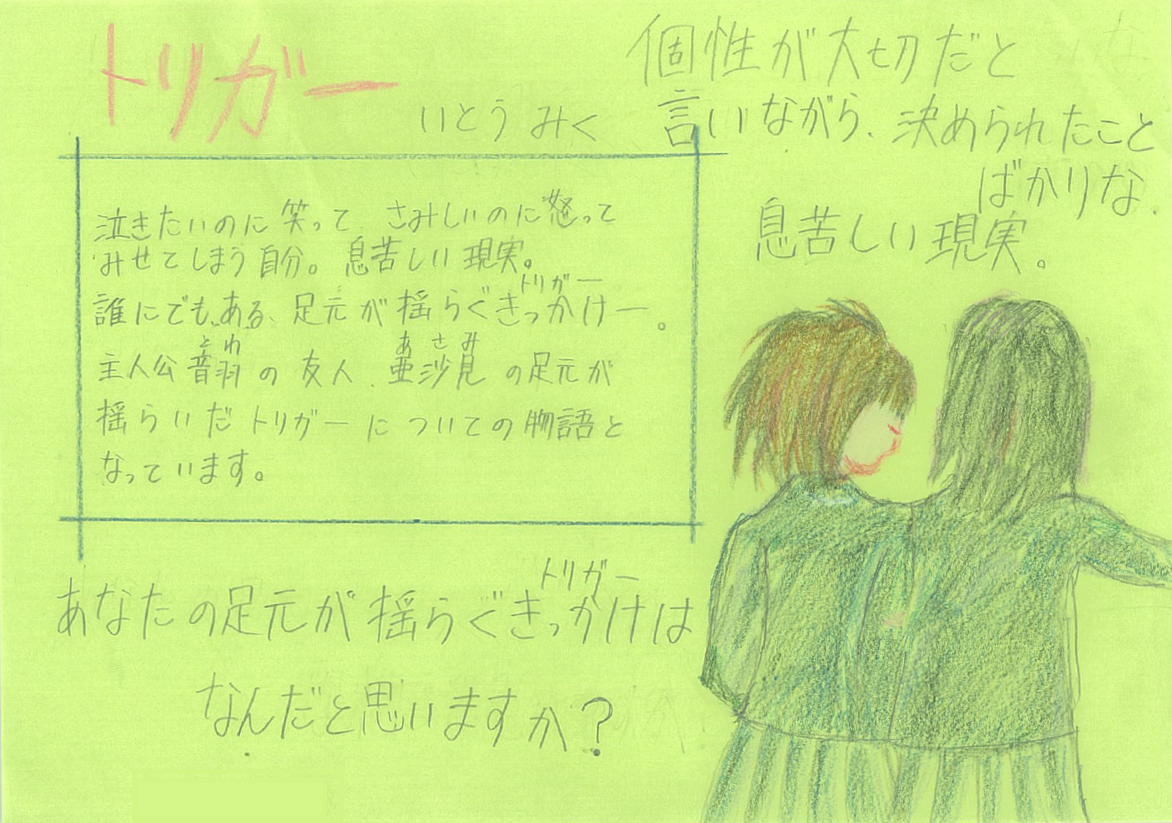 トリガー
いとう みく
個性が大切だと
言いながら、決められたこと
ばかりな、
息苦しい現実。
泣きたいのに笑って さみしいのに怒って
みせてしまう自分。息苦しい現実。
トリガー
誰にでもある、足元が揺らぐきっかけー。
とわ あさみ
主人公音羽の友人、亜沙見の足元が
揺らいだトリガーについての物語と
なっています。
トリガー
あなたの足元が揺らぐきっかけは
なんだと思いますか?